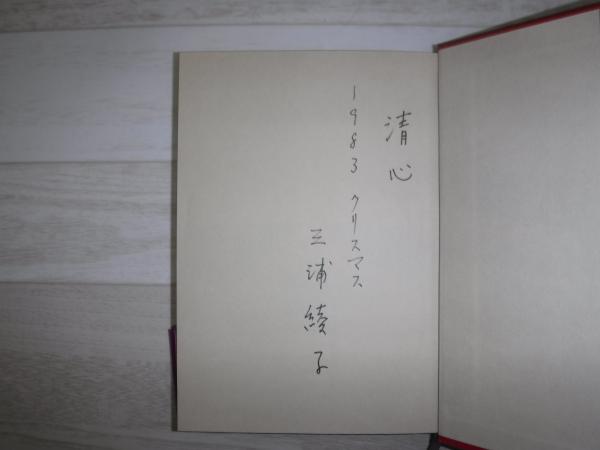 清心
1983 クリスマス
三浦綾子